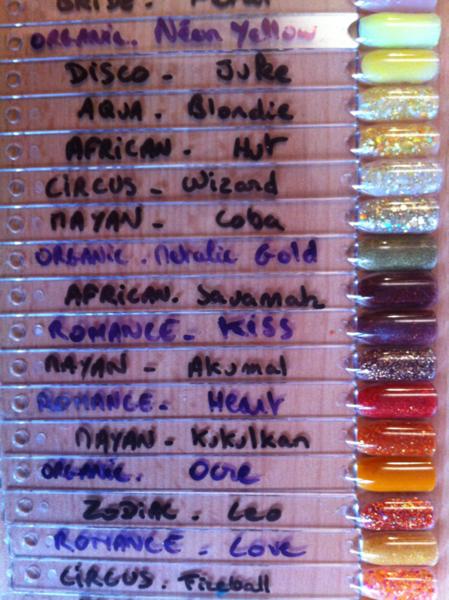 BRIDE.
ORGANIC. Néon Yellow
DISCO - Juke
AQUA. Blondie
AFRICAN. Hut
CIRCUS - Wizard
MAYAN - Coba
ORGANIC. Metalic Gold
AFRICAN. Savannah
ROMANCE. KISS
MAYAN - Akumal
ROMANCE. Heart
MAYAN - Kukulkan
ORGANIC. Ocre
ZODIAC. Leo
ROMANCE - LOVE
CIRCUS. Fireball